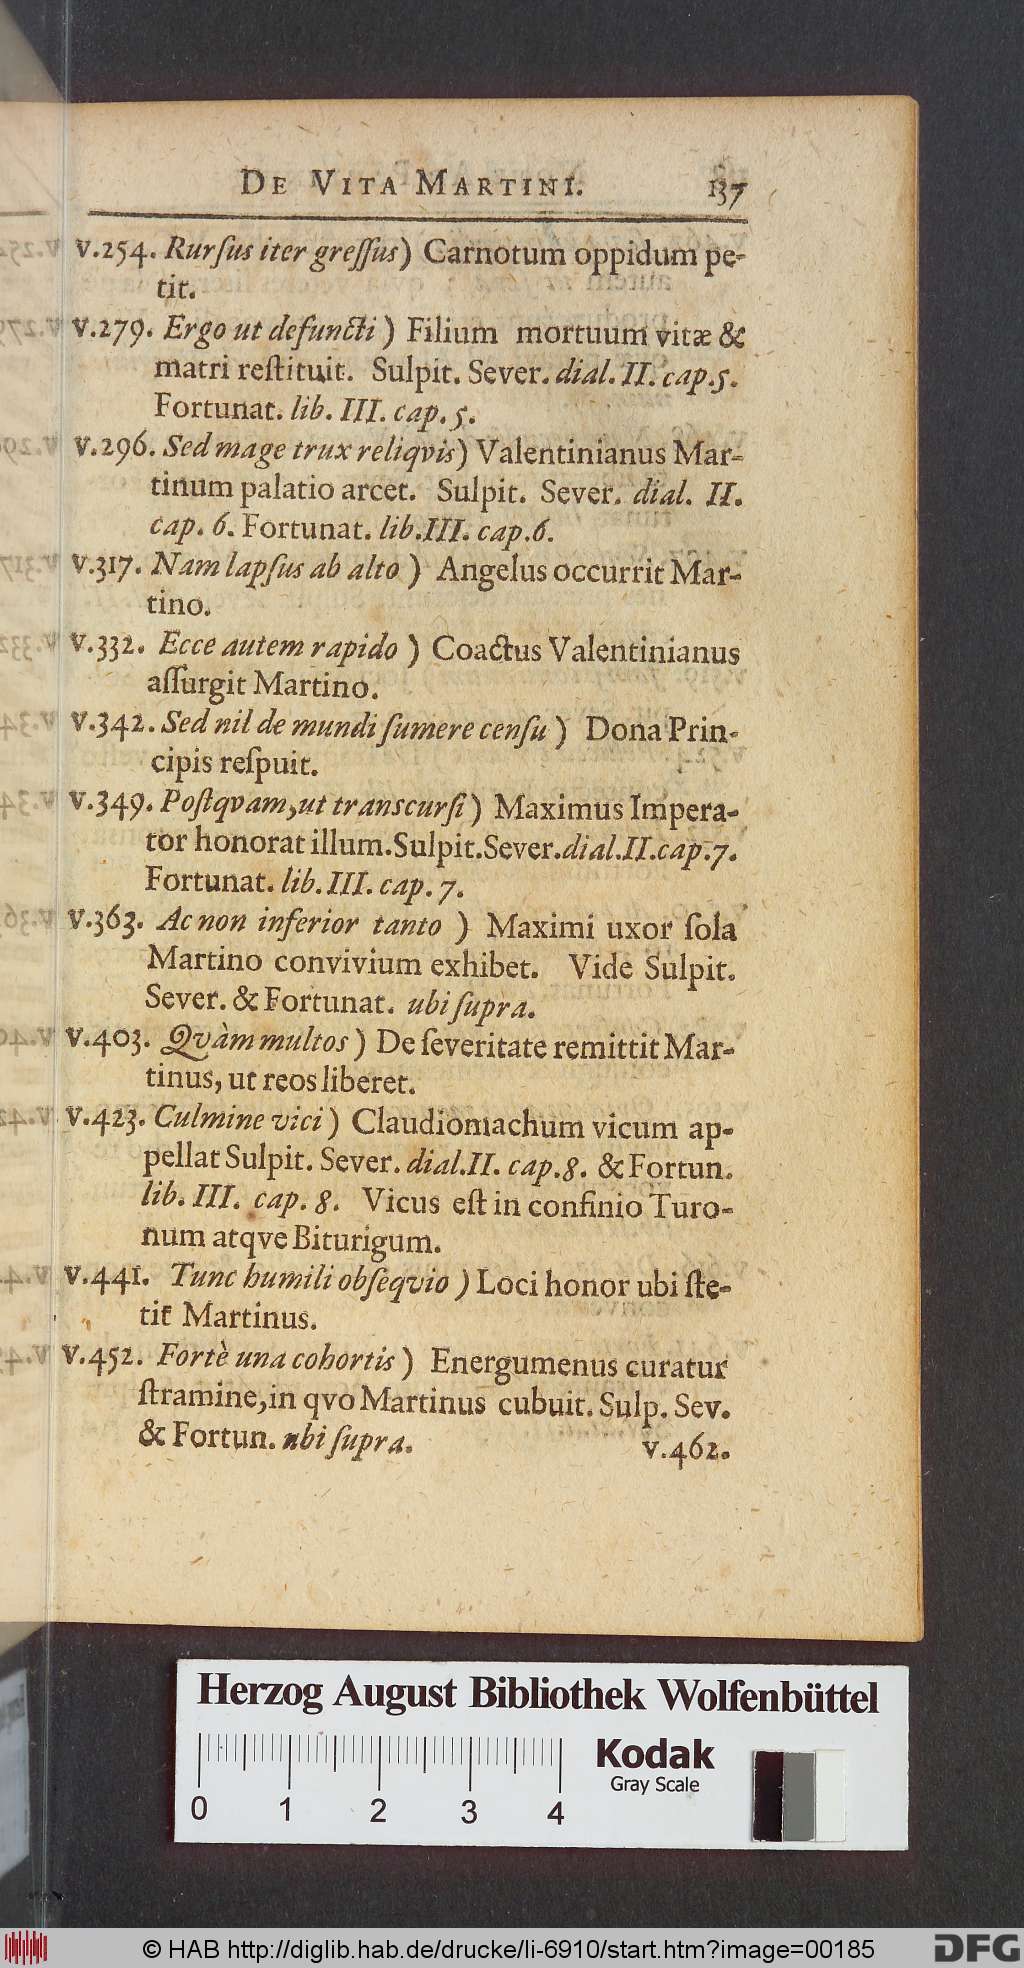 DE VITA MARTINI. 137
v.254. Rurſus iter greſſus) Carnotum oppidum pe-
tit.
v.279. Ergo ut defuncti) Filium mortuum vitæ &
matri reſtituit. Sulpit. Sever. dial. II. cap.5.
Fortunat. lib. III. cap. 5.
v.296. Sed mage trux reliqvis) Valentinianus Mar-
tinum palatio arcet. Sulpit. Sever. dial. II.
cap. 6. Fortunat. lib.III. cap.6.
v.317. Nam lapſus ab alto) Angelus occurrit Mar-
tino.
v.332. Ecce autem rapido) Coactus Valentinianus
aſſurgit Martino.
v.342. Sed nil de mundi ſumere cenſu) Dona Prin-
cipis reſpuit.
v.349. Poſtqvam, ut transcurſi) Maximus Impera-
tor honorat illum. Sulpit. Sever. dial. II. cap.7.
Fortunat. lib. III. cap. 7.
v.363. Ac non inferior tanto) Maximi uxor ſola
Martino convivium exhibet. Vide Sulpit.
Sever. & Fortunat. ubi ſupra.
v.403. Qvàm multos) De ſeveritate remittit Mar-
tinus, ut reos liberet.
v.423. Culmine vici) Claudiomachum vicum ap-
pellat Sulpit. Sever. dial.II. cap.8. & Fortun.
lib. III. cap. 8. Vicus eſt in confinio Turo-
num atqve Biturigum.
v.441. Tunc humili obſeqvio) Loci honor ubi ſte-
tit Martinus.
v.452. Fortè una cohortis) Energumenus curatur
ſtramine, in qvo Martinus cubuit. Sulp. Sev.
& Fortun. ubi ſupra.
v.462.
Herzog August Bibliothek Wolfenbüttel
Kodak
Gray Scale
0 1 2 3 4
© HAB http://diglib.hab.de/drucke/li-6910/start.htm?image=00185
DFG